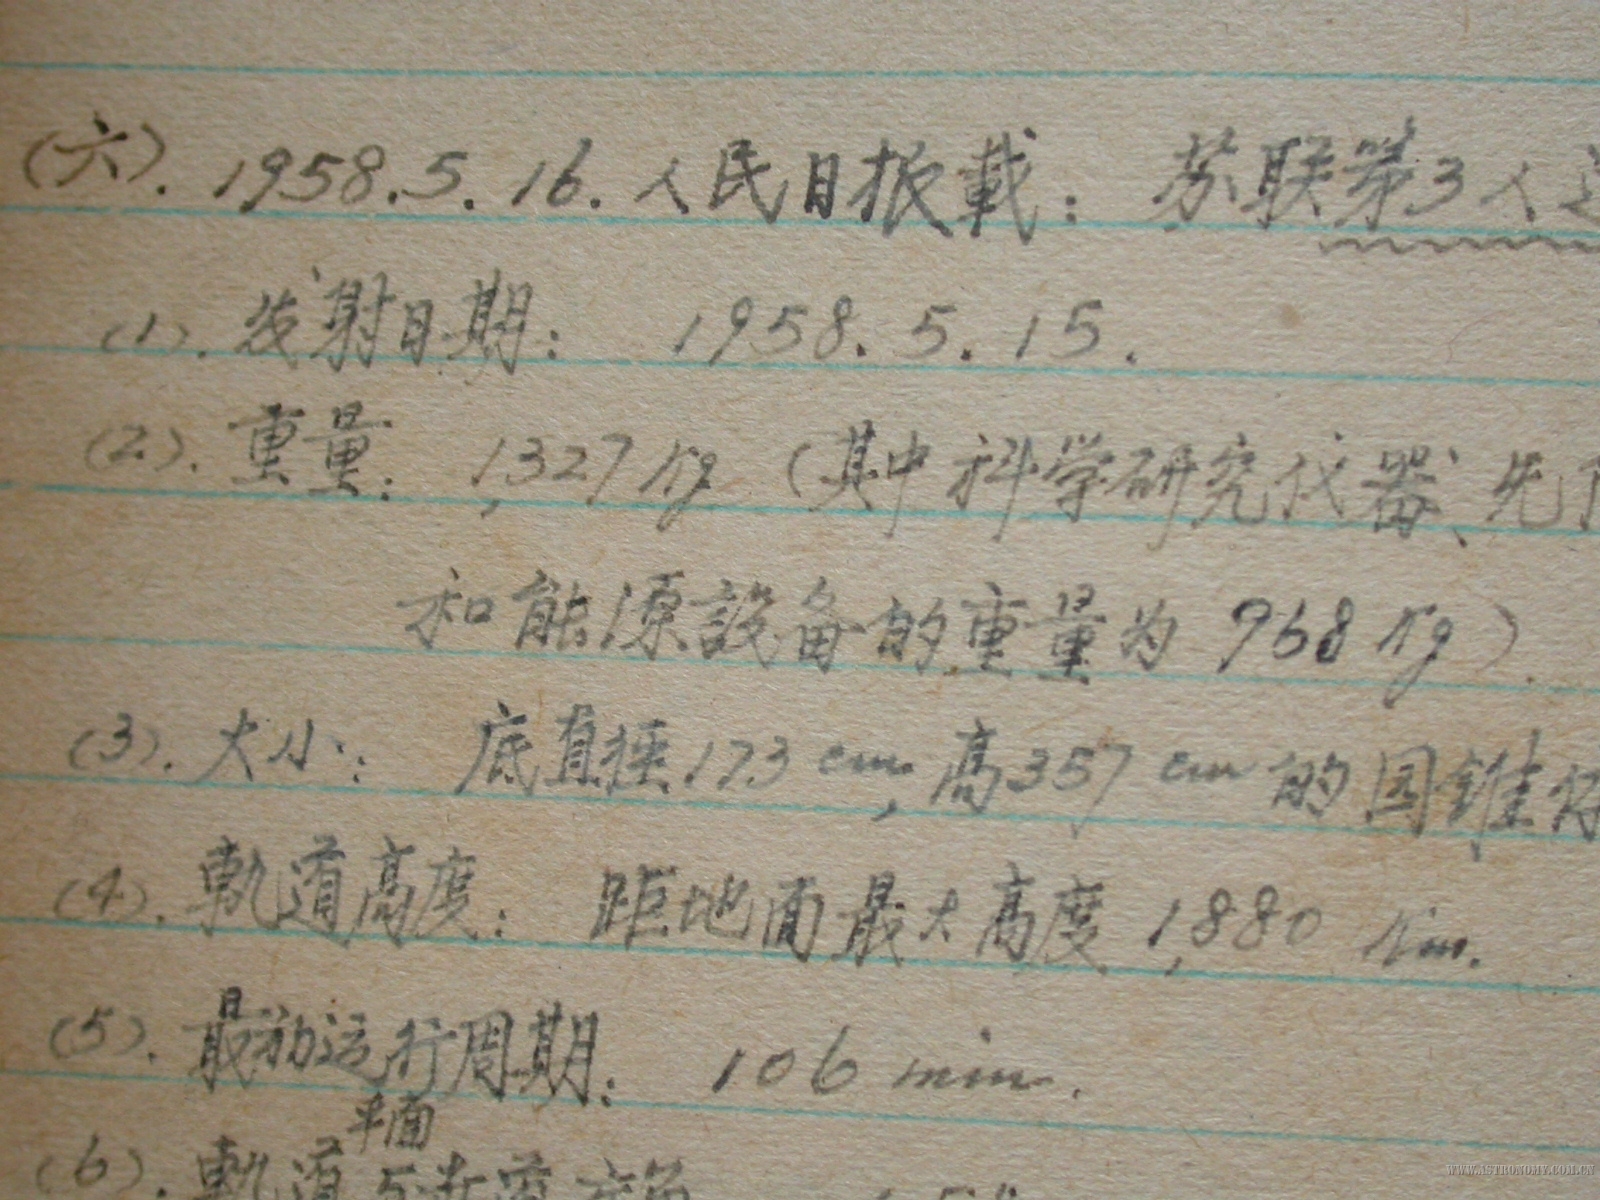 (六). 1958.5.16.人民日报載： 苏联第3人造
(1). 发射日期： 1958.5.15.
(2). 重量： 1,327 Kg (其中科学研究仪器、
和能源設备的重量为 968 Kg).
(3). 大小： 底直徑173 cm, 高357 cm 的圆錐
(4). 軌道高度： 距地面最大高度 1,880 Km.
(5). 最初运行周期： 106 min.
平面
(6). 軌道与赤道交角
WWW.ASTRONOMY.COM.CN